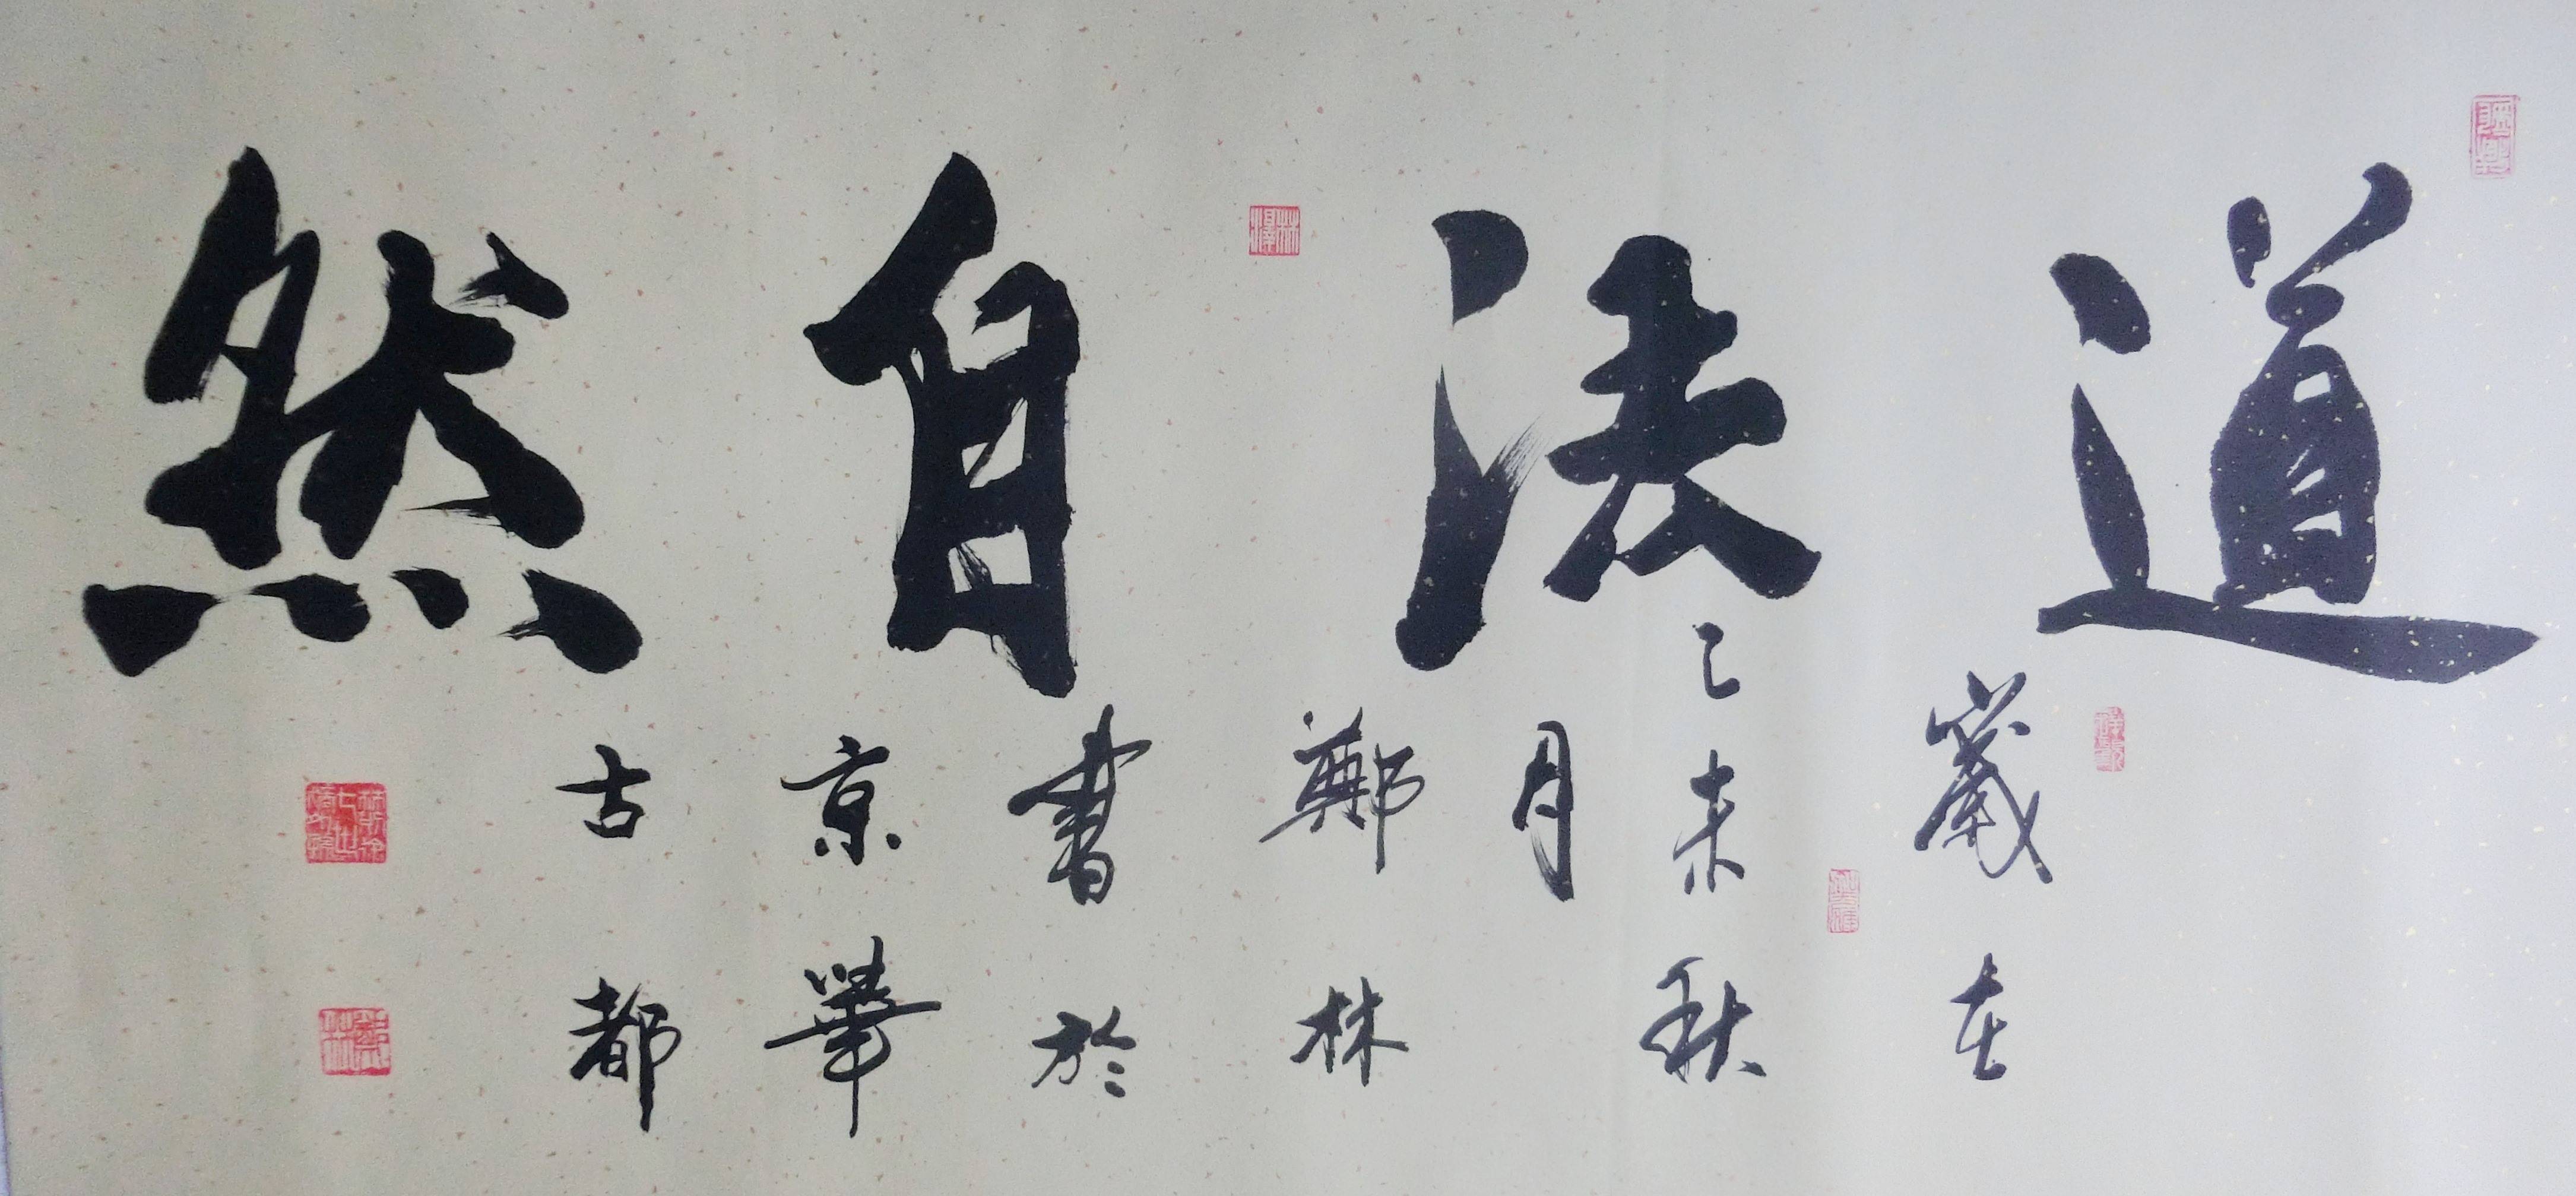 道法自然
歲在
乙未秋
月
鄭林
書於
京華
古都